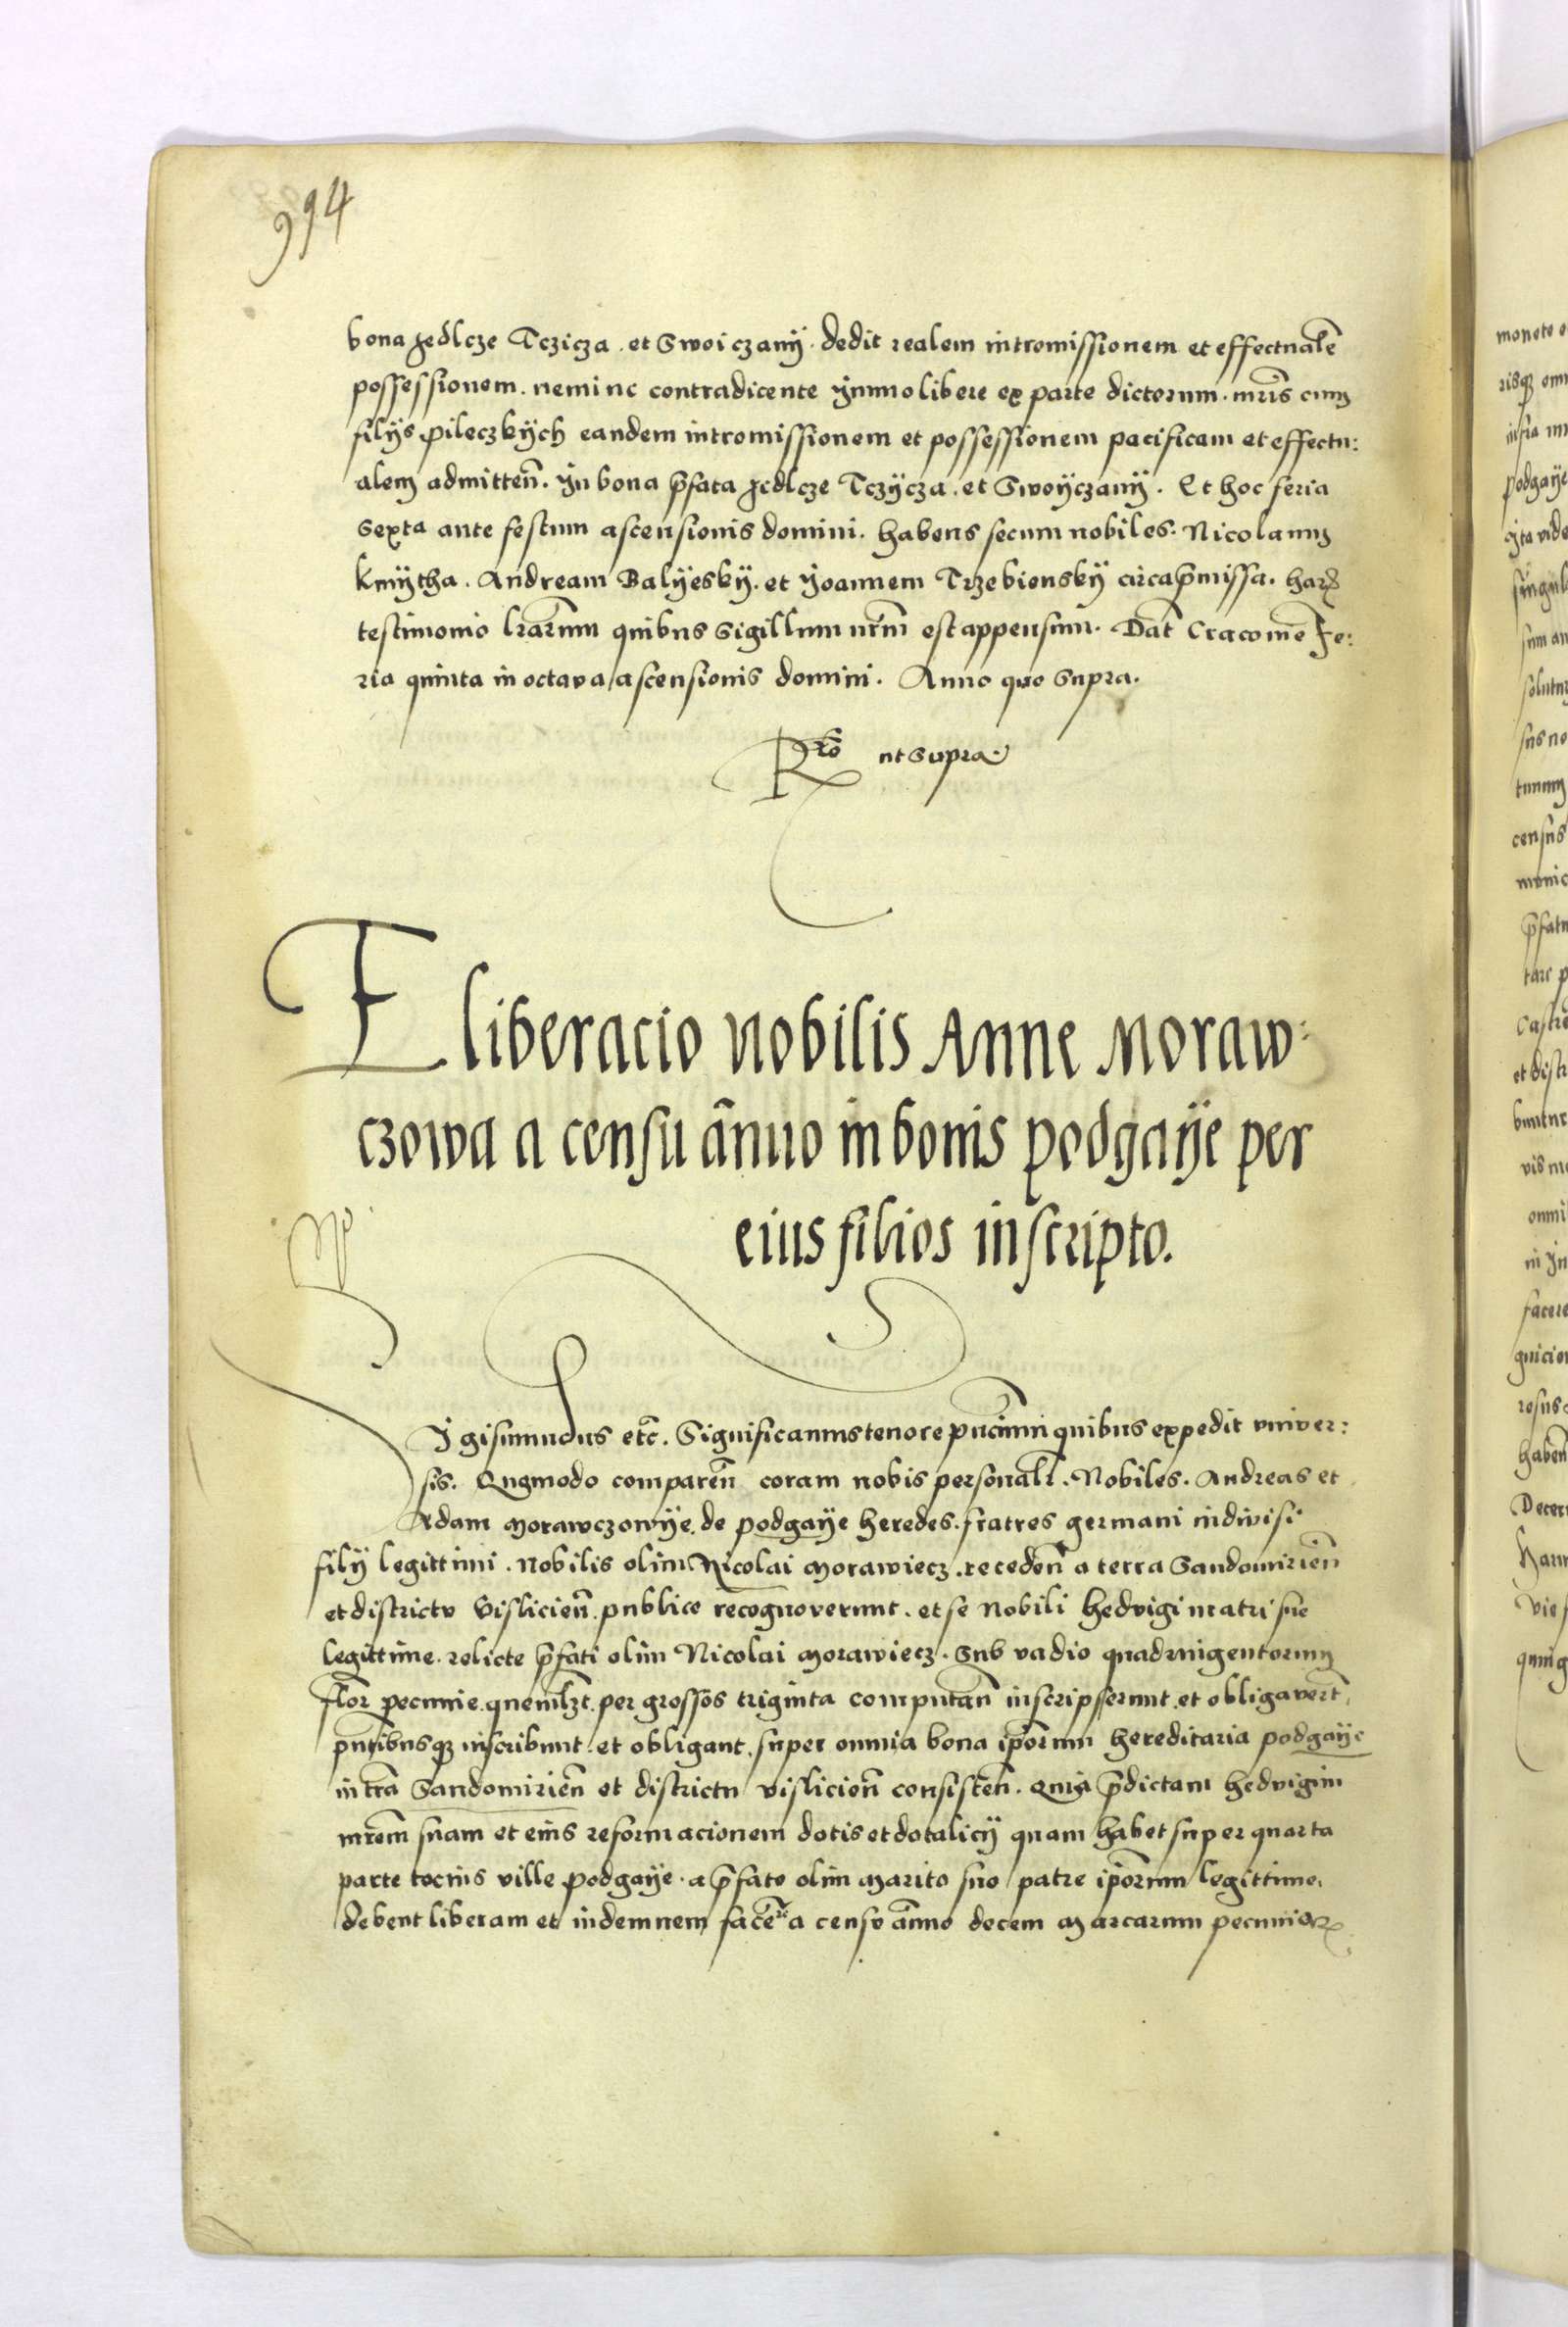 994
bona Jedlcze Tczicza . et Swoiczany . dedit realem intromissionem et effectualē
possessionem . nemine contradicente ymmo libere ex parte dictorum . mr̄is cum
filÿs pileczkÿch eandem intromissionem et possessionem pacificam et effectu:
alem admitten̄ . yn bona p̄fata Jedlcze Tczÿcza . et Swoÿczanÿ . Et hoc feria
sexta ante festum ascensionis domini . habens secum nobiles . Nicolaum
kmÿtha . Andream Balÿeskÿ . et Joannem Trzebienskÿ circa p̄missa . harꝝ
testimonio lr̄arum quibus sigillum nr̄m est appensum . Dat̄ Cracouie Fe:
ria quinta in octava ascensionis domini . Anno quo supra .
Rᵗⁱᵒ ut supra
Eliberacio nobilis Anne Moraw:
czowa a censu ānuo in bonis podgaÿe per
eius filios inscripto.
Sigismundus etc̄ . Significamus tenore pn̄cium quibus expedit vniver:
sis . Qngmodo comparen̄ coram nobis personalr̄ . Nobiles . Andreas et
Adam morawczowÿe de podgaÿe heredes . fratres germani indivisi
filÿ legittimi . nobilis olim Nicolai morawiecz . receden̄ a terra Sandomirien̄
et districtu Vislicien̄ . publice recognoverunt . et se nobili hedvigi matri sue
legittime . relicte p̄fati olim Nicolai morawiecz . Sub vadio quadringentorum
flor̄ pecunie . quemlꝫt . per grossos triginta computan̄ inscripserunt . et obligaverūt
pn̄tibusqꝫ inscribunt . et obligant . super omnia bona ip̄orum hereditaria podgaÿe
in tr̄a Sandomirien̄ et districtu vislicien̄ consisten̄ . Quia p̄dictam hedvigim
mr̄em suam et eius reformacionem dotis et dotalicÿ quam habet super quarta
parte tocius ville podgaÿe . a p̄fato olim marito suo patre ip̄orum legittimo .
debent liberam et indemnem facere a censu ānuo decem marcarum pecuniaꝝ